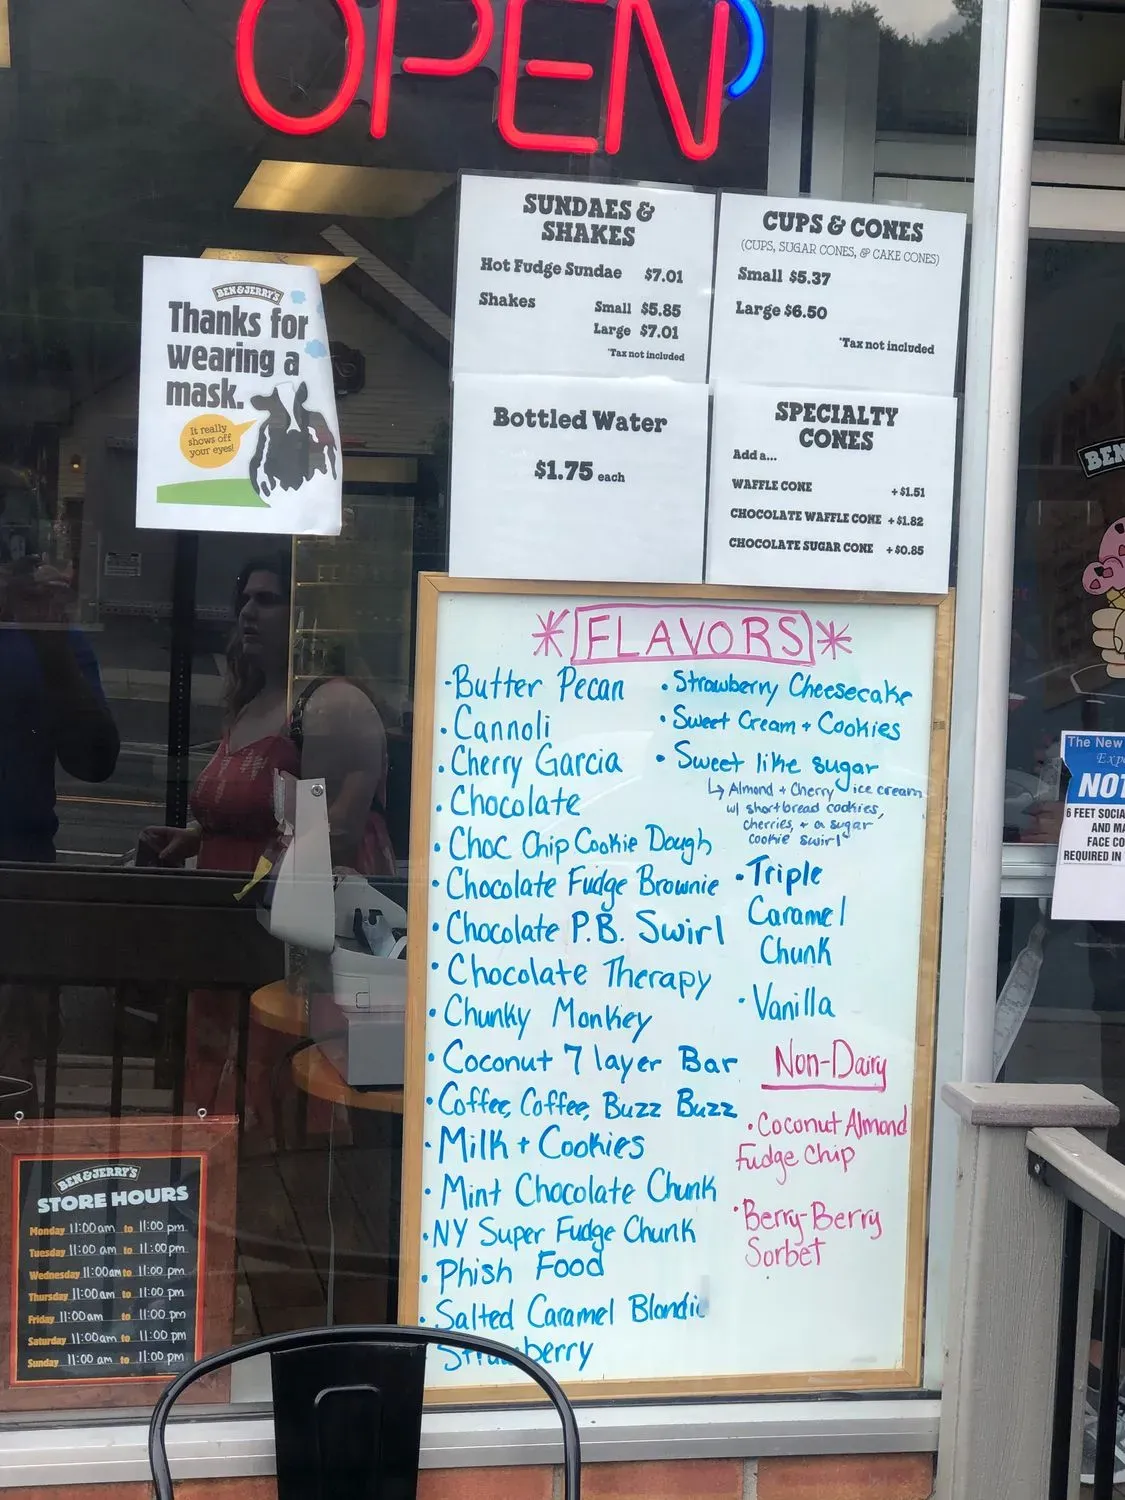 OPEN
BEN & JERRY'S
Thanks for
wearing a
mask.
It really
shows off
your eyes!
SUNDAES &
SHAKES
Hot Fudge Sundae $7.01
Shakes Small $5.85
Large $7.01
*Tax not included
CUPS & CONES
(CUPS, SUGAR CONES, & CAKE CONES)
Small $5.37
Large $6.50
*Tax not included
Bottled Water
$1.75 each
SPECIALTY
CONES
Add a...
WAFFLE CONE +$1.51
CHOCOLATE WAFFLE CONE +$1.82
CHOCOLATE SUGAR CONE +$0.85
*FLAVORS*
• Butter Pecan
• Cannoli
• Cherry Garcia
• Chocolate
• Choc Chip Cookie Dough
• Chocolate Fudge Brownie
• Chocolate P.B. Swirl
• Chocolate Therapy
• Chunky Monkey
• Coconut 7 layer Bar
• Coffee, Coffee, Buzz Buzz
• Milk + Cookies
• Mint Chocolate Chunk
• NY Super Fudge Chunk
• Phish Food
• Salted Caramel Blondie
Strawberry
• Strawberry Cheesecake
• Sweet Cream + Cookies
• Sweet like sugar
↳ Almond + Cherry ice cream
w/ shortbread cookies,
cherries, + a sugar
cookie swirl
• Triple
Caramel
Chunk
• Vanilla
Non-Dairy
• Coconut Almond
Fudge Chip
• Berry-Berry
Sorbet
BEN & JERRY'S
STORE HOURS
Monday 11:00am to 11:00 pm
Tuesday 11:00 am to 11:00pm
Wednesday 11:00am to 11:00 pm
Thursday 11:00am to 11:00 pm
Friday 11:00am to 11:00 pm
Saturday 11:00am to 11:00 pm
Sunday 11:00 am to 11:00 pm
BEN
The New
NOT
6 FEET SOCIA
AND MA
FACE CO
REQUIRED IN